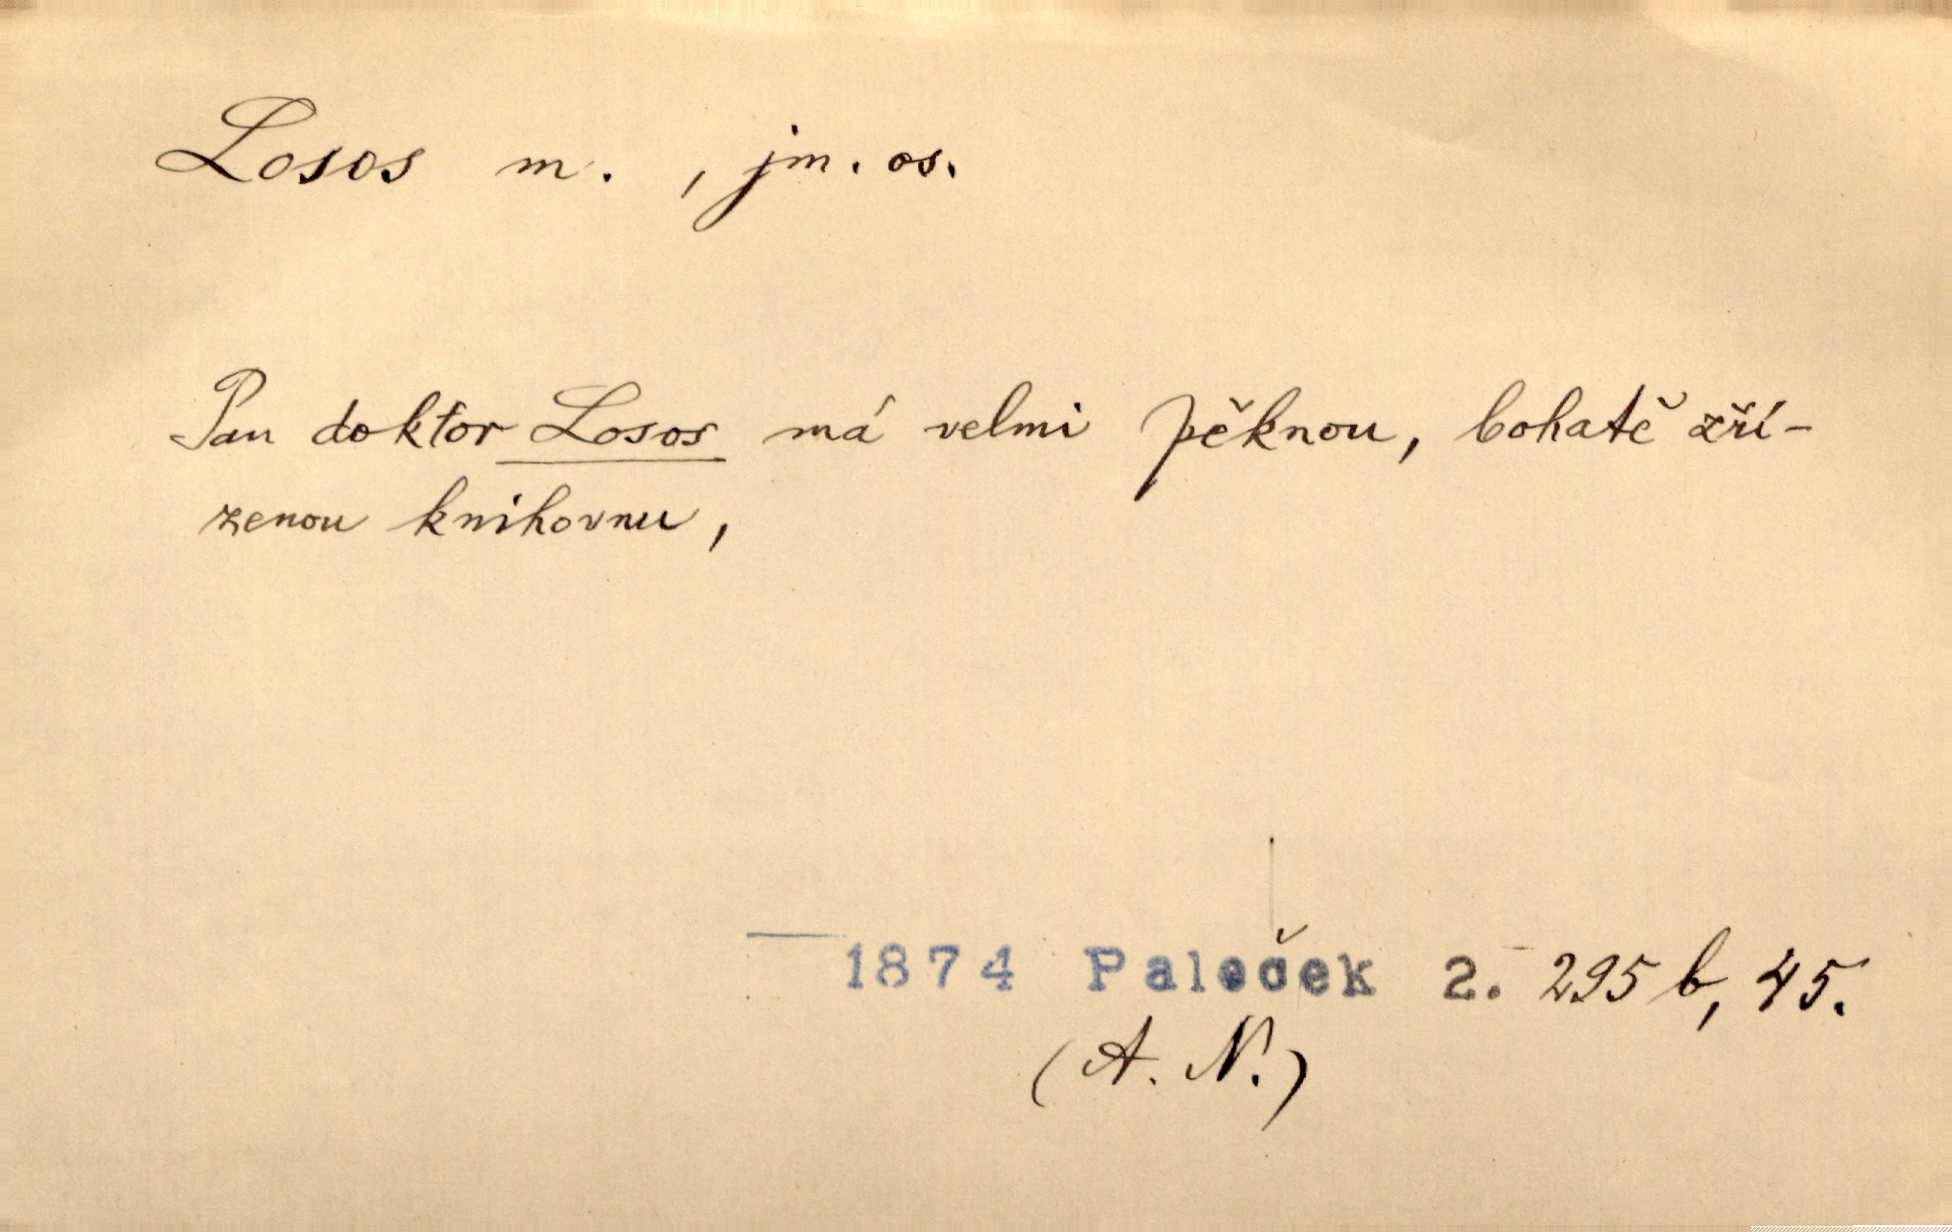 Losos m. , jm. os.
Pan doktor Losos má velmi pěknou, bohatě zří-
zenou knihovnu,
1874 Paleček 2. 295 b, 45.
(A. N.)